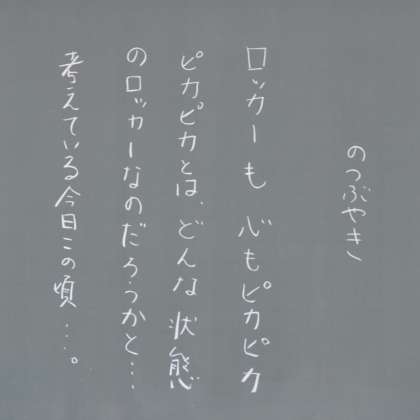 のつぶやき
ロッカーも 心もピカピカ
ピカピカとは、どんな状態
のロッカーなのだろうかと…
考えている今日この頃…。